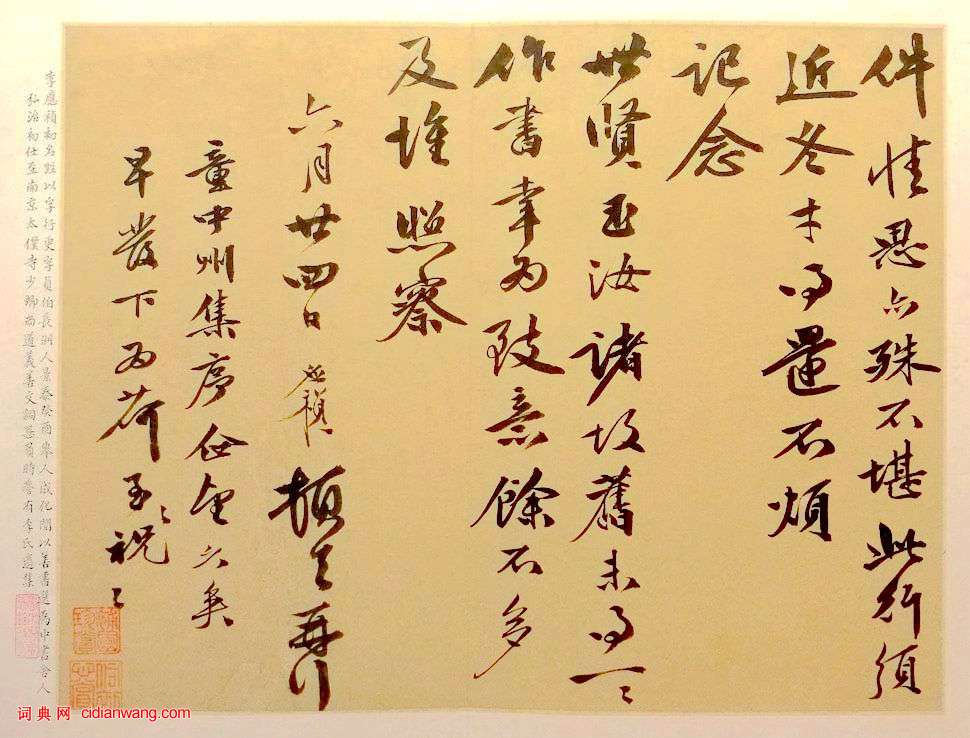 件情思亦殊不堪此行須
近冬才得還不煩
記念
世賢玉汝諸故舊未得一一
作書幸為致意餘不多
及惟照察
六月廿四日應禎頓首再拜
童中州集序企望久矣
早發下為荷至祝至祝
李應禎初名甡以字行更字貞伯長洲人景泰癸酉舉人成化間以善書選為中書舍人
弘治初仕至南京太僕寺少卿尚道義善文詞為時譽有李氏遺集
词典网 cidianwang.com